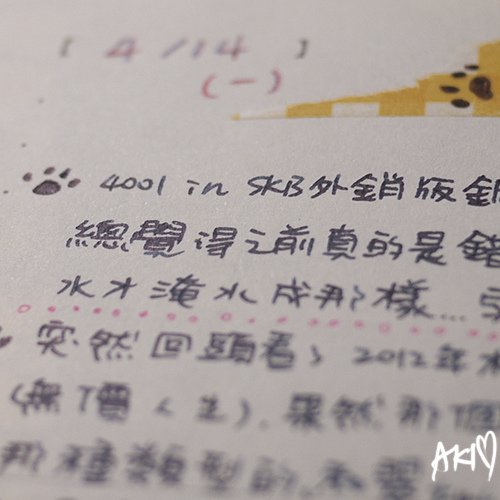 [ 4/14 ]
(一)
4001 in SKB外銷版鋼
總覺得之前真的是錯
水才淹水成那樣...
突然回頭看了2012年
(無價人生).果然那個
那種類型的.和
AKI♡